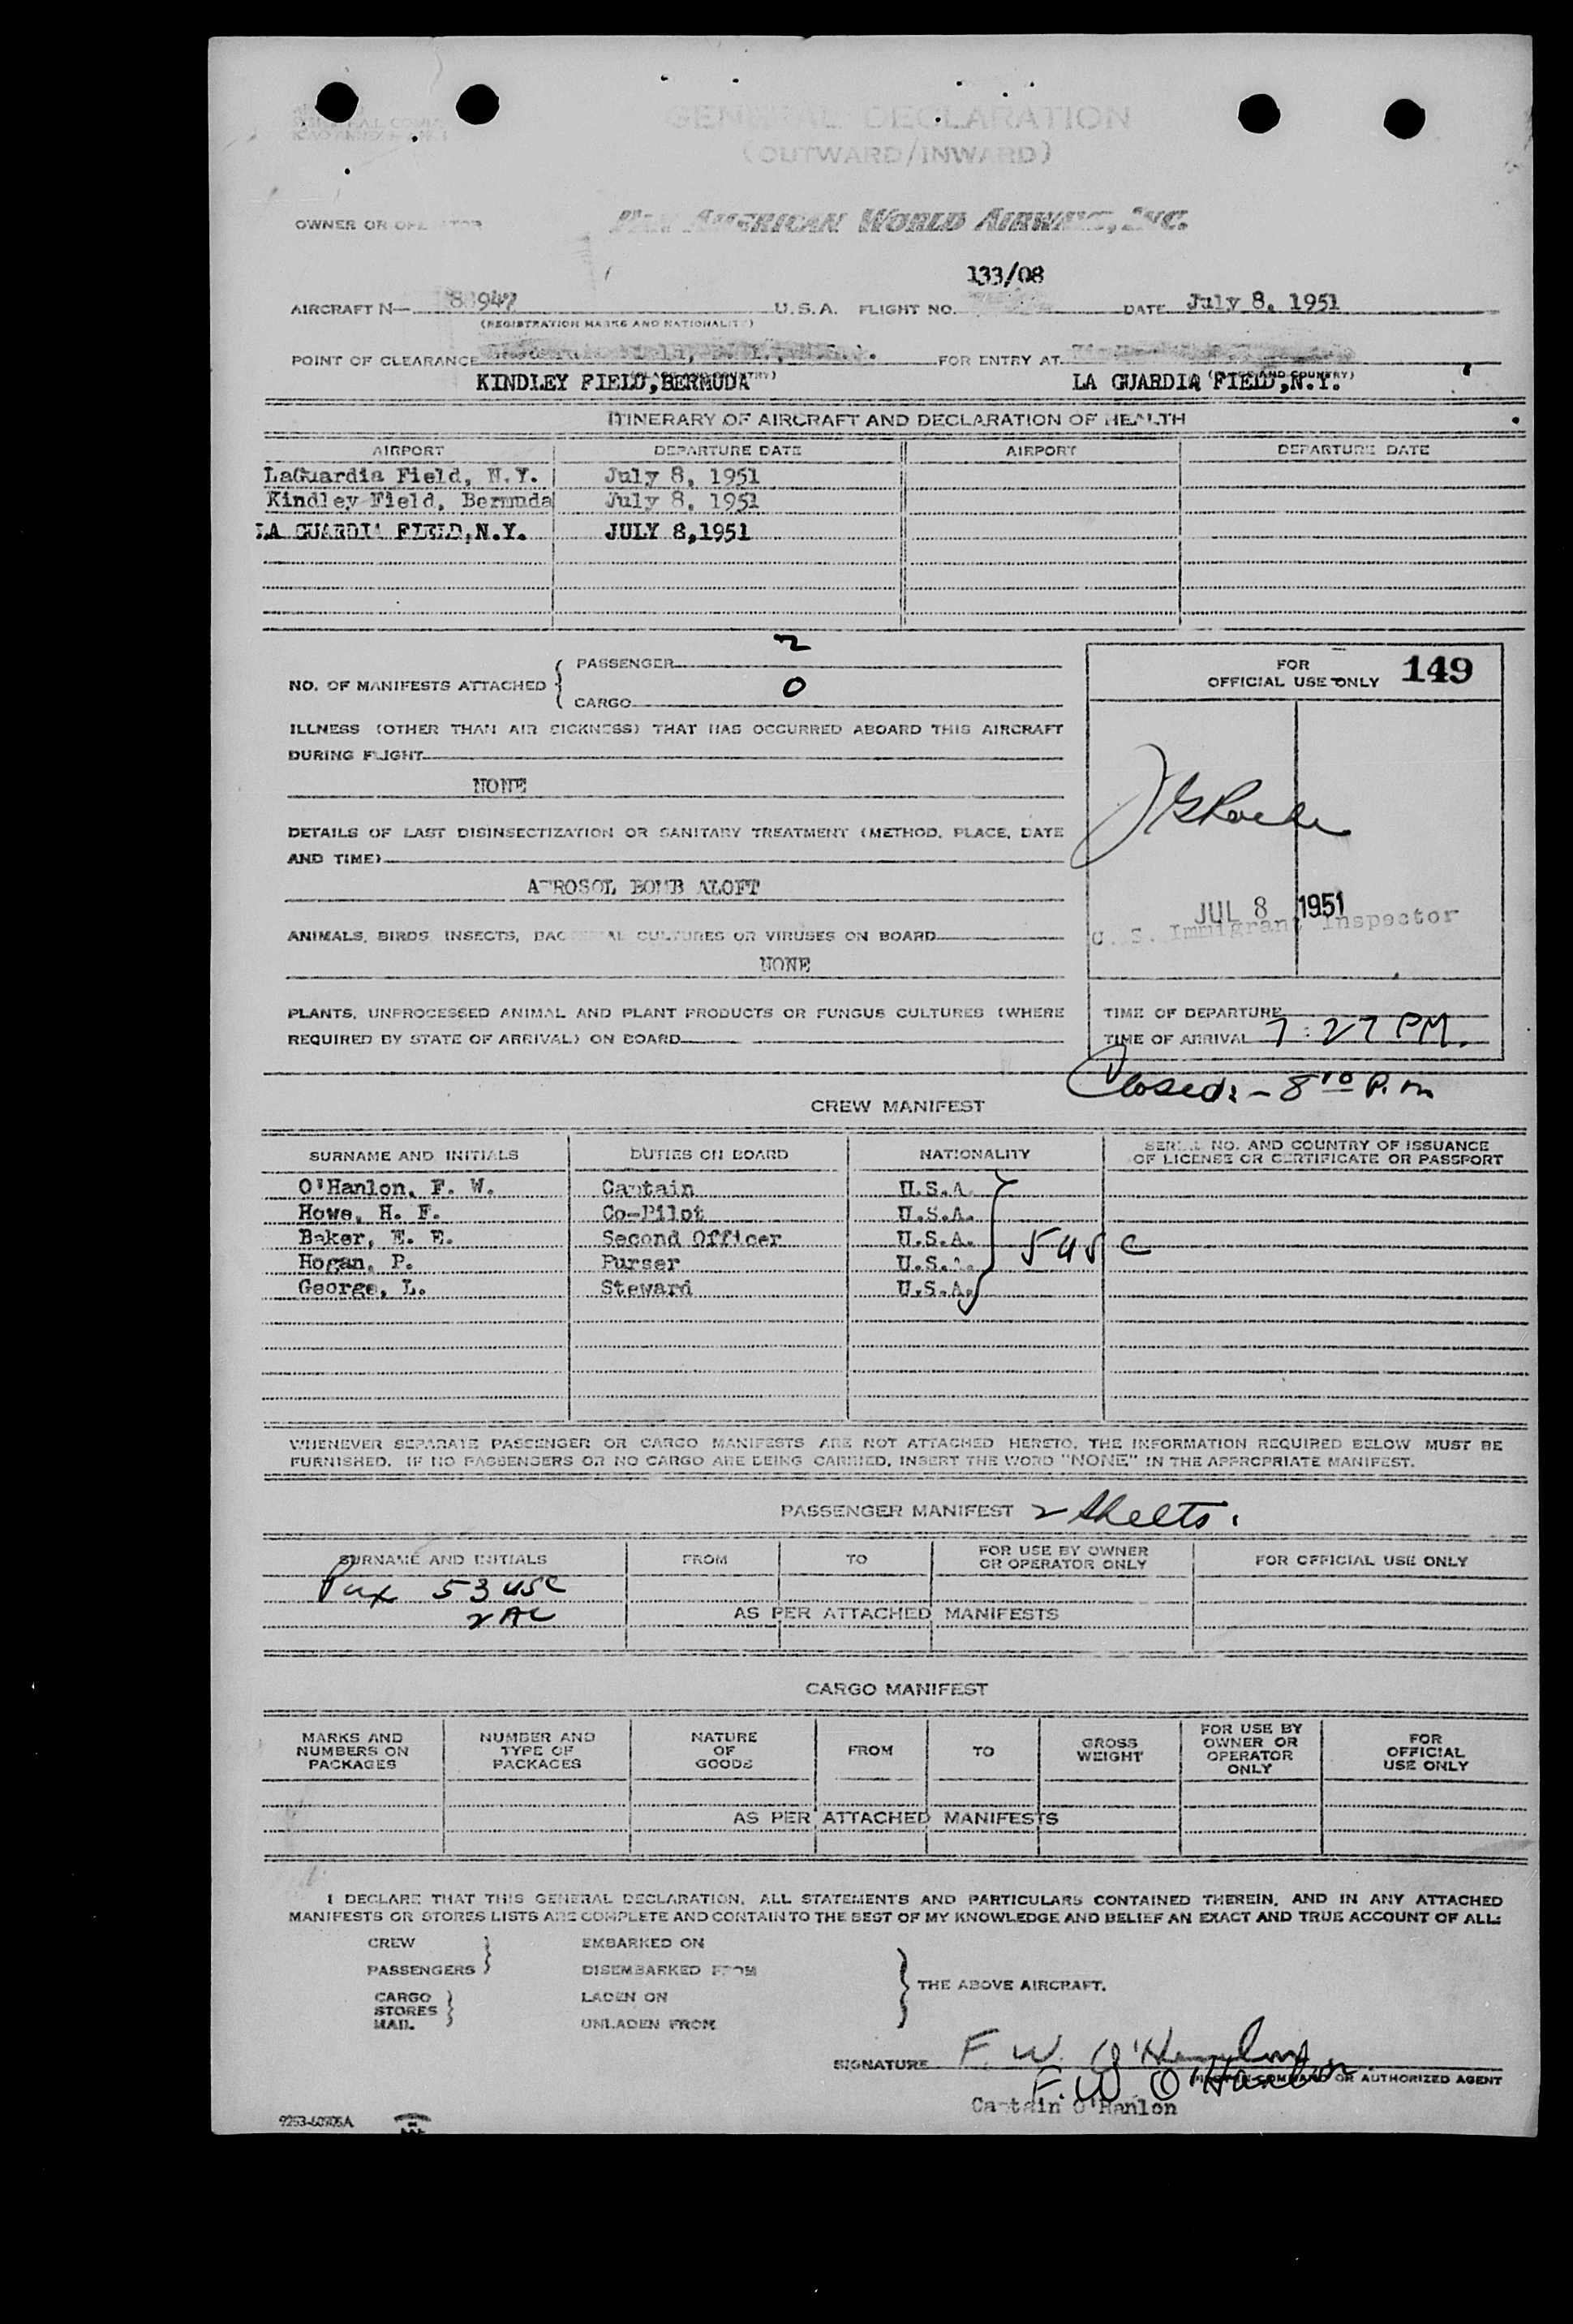 GENERAL DECLARATION
(OUTWARD/INWARD)
OWNER OR OPERATOR PAN AMERICAN WORLD AIRWAYS, INC.
133/08
AIRCRAFT N- 88947 U.S.A. FLIGHT NO. DATE July 8, 1951
(REGISTRATION MARKS AND NATIONALITY)
POINT OF CLEARANCE FOR ENTRY AT
KINDLEY FIELD, BERMUDA LA GUARDIA FIELD, N.Y.
ITINERARY OF AIRCRAFT AND DECLARATION OF HEALTH
AIRPORT DEPARTURE DATE AIRPORT DEPARTURE DATE
LaGuardia Field, N.Y. July 8, 1951
Kindley Field, Bermuda July 8, 1951
LA GUARDIA FIELD, N.Y. JULY 8, 1951
NO. OF MANIFESTS ATTACHED
PASSENGER 2
CARGO 0
FOR OFFICIAL USE ONLY 149
ILLNESS (OTHER THAN AIR SICKNESS) THAT HAS OCCURRED ABOARD THIS AIRCRAFT
DURING FLIGHT
NONE
DETAILS OF LAST DISINSECTIZATION OR SANITARY TREATMENT (METHOD, PLACE, DATE
AND TIME)
AEROSOL BOMB ALOFT
JUL 8 1951
U. S. Immigrant Inspector
ANIMALS, BIRDS, INSECTS, BACTERIAL CULTURES OR VIRUSES ON BOARD
NONE
PLANTS, UNPROCESSED ANIMAL AND PLANT PRODUCTS OR FUNGUS CULTURES (WHERE
REQUIRED BY STATE OF ARRIVAL) ON BOARD
TIME OF DEPARTURE
TIME OF ARRIVAL 7:27 PM.
Closed:- 8 10 P.m
CREW MANIFEST
SURNAME AND INITIALS DUTIES ON BOARD NATIONALITY SERIAL NO. AND COUNTRY OF ISSUANCE OF LICENSE OR CERTIFICATE OR PASSPORT
O'Hanlon, F. W. Captain U.S.A.
Howe, H. F. Co-Pilot U.S.A.
Baker, E. E. Second Officer U.S.A. 5 USC
Hogan, P. Purser U.S.A.
George, L. Steward U.S.A.
WHENEVER SEPARATE PASSENGER OR CARGO MANIFESTS ARE NOT ATTACHED HERETO, THE INFORMATION REQUIRED BELOW MUST BE
FURNISHED. IF NO PASSENGERS OR NO CARGO ARE BEING CARRIED, INSERT THE WORD "NONE" IN THE APPROPRIATE MANIFEST.
PASSENGER MANIFEST 2 Sheets.
SURNAME AND INITIALS FROM TO FOR USE BY OWNER OR OPERATOR ONLY FOR OFFICIAL USE ONLY
Pax 53 USC
2 AC
AS PER ATTACHED MANIFESTS
CARGO MANIFEST
MARKS AND NUMBERS ON PACKAGES NUMBER AND TYPE OF PACKAGES NATURE OF GOODS FROM TO GROSS WEIGHT FOR USE BY OWNER OR OPERATOR ONLY FOR OFFICIAL USE ONLY
AS PER ATTACHED MANIFESTS
I DECLARE THAT THIS GENERAL DECLARATION, ALL STATEMENTS AND PARTICULARS CONTAINED THEREIN, AND IN ANY ATTACHED
MANIFESTS OR STORES LISTS ARE COMPLETE AND CONTAIN TO THE BEST OF MY KNOWLEDGE AND BELIEF AN EXACT AND TRUE ACCOUNT OF ALL:
CREW EMBARKED ON
PASSENGERS DISEMBARKED FROM
THE ABOVE AIRCRAFT.
CARGO LADEN ON
STORES
MAIL UNLADEN FROM
SIGNATURE F. W. O'Hanlon
PILOT IN COMMAND OR AUTHORIZED AGENT
F. W O'Hanlon
Captain O'Hanlon